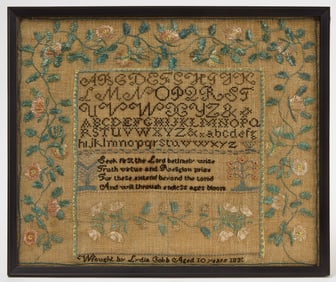 ABCDEFGHIJK
LMNOPQRST
UVWXYZ&
ABCDEFGHIJKLMNOPQ
RSTUVWXYZ& abcdefg
hijklmnopqrstuvwxyz
Seek first the Lord betimes wise
Truth vertue and Religion prize
For these extend beyond the tomb
And will through endless ages bloom
Wrought by Lydia Cobb Aged 10 years